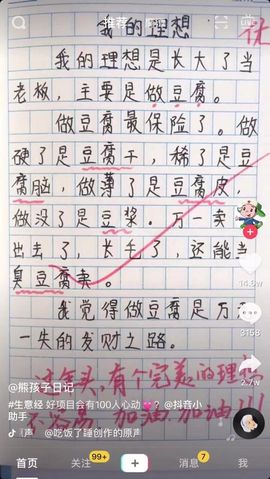 推荐
我的理想
我的理想是长大了当
老板,主要是做豆腐。
做豆腐最保险了。做
硬了是豆腐干,稀了是豆
腐脑,做薄了是豆腐皮,
做没了是豆浆。万一卖不
出去了,长毛了,还能当
臭豆腐卖。
我觉得做豆腐是万无
一失的发财之路。
这年头,有个完美的理想
不容易,加油,加油!!!
14.8w
1158
2.7w
@熊孩子日记
#生意经 好项目会有100人心动 @抖音小
助手
@吃饭了踵创作的原声
首页
关注
99+
消息
7
我